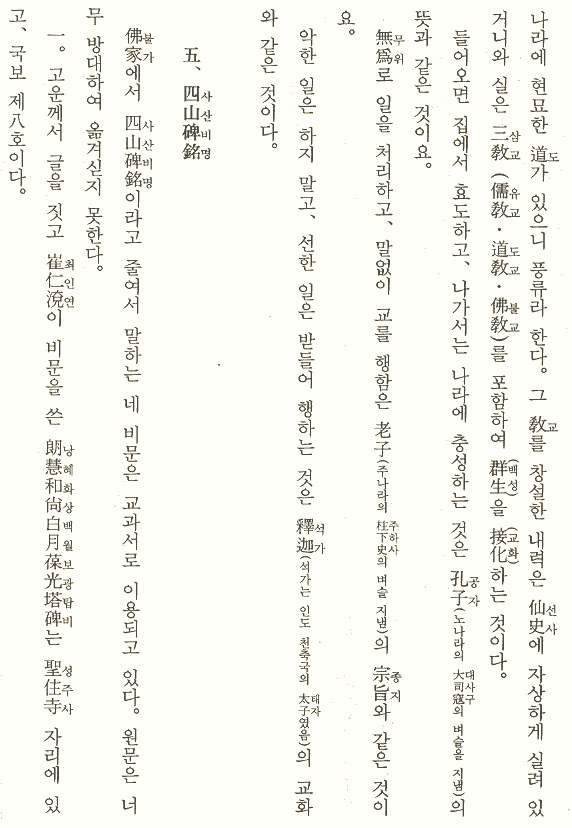 도 교 선사
나라에 현묘한 道가 있으니 풍류라 한다。 그 敎를 창설한 내력은 仙史에 자상하게 실려 있
삼교 유교 도교 불교 (백성) (교화)
거니와 실은 三敎 (儒敎·道敎·佛敎)를 포함하여 群生을 接化하는 것이다。
공자 대사구
들어오면 집에서 효도하고、 나가서는 나라에 충성하는 것은 孔子(노나라의 大司寇의 벼슬을 지냄)의
뜻과 같은 것이요。
무위 주하사 종지
無爲로 일을 처리하고、 말없이 교를 행함은 老子(주나라의 柱下史의 벼슬 지냄)의 宗旨와 같은 것이
요。
석가 태자
악한 일은 하지 말고、 선한 일은 받들어 행하는 것은 釋迦(석가는 인도 천축국의 太子였음)의 교화
와 같은 것이다。
사산비명
五、 四山碑銘
불가 사산비명
佛家에서 四山碑銘이라고 줄여서 말하는 네 비문은 교과서로 이용되고 있다。 원문은 너
무 방대하여 옮겨싣지 못한다。
최인연 낭혜화상백월보광탑비 성주사
一。 고운께서 글을 짓고 崔仁渷이 비문을 쓴 朗慧和尙白月葆光塔碑는 聖住寺 자리에 있
고、 국보 제八호이다。